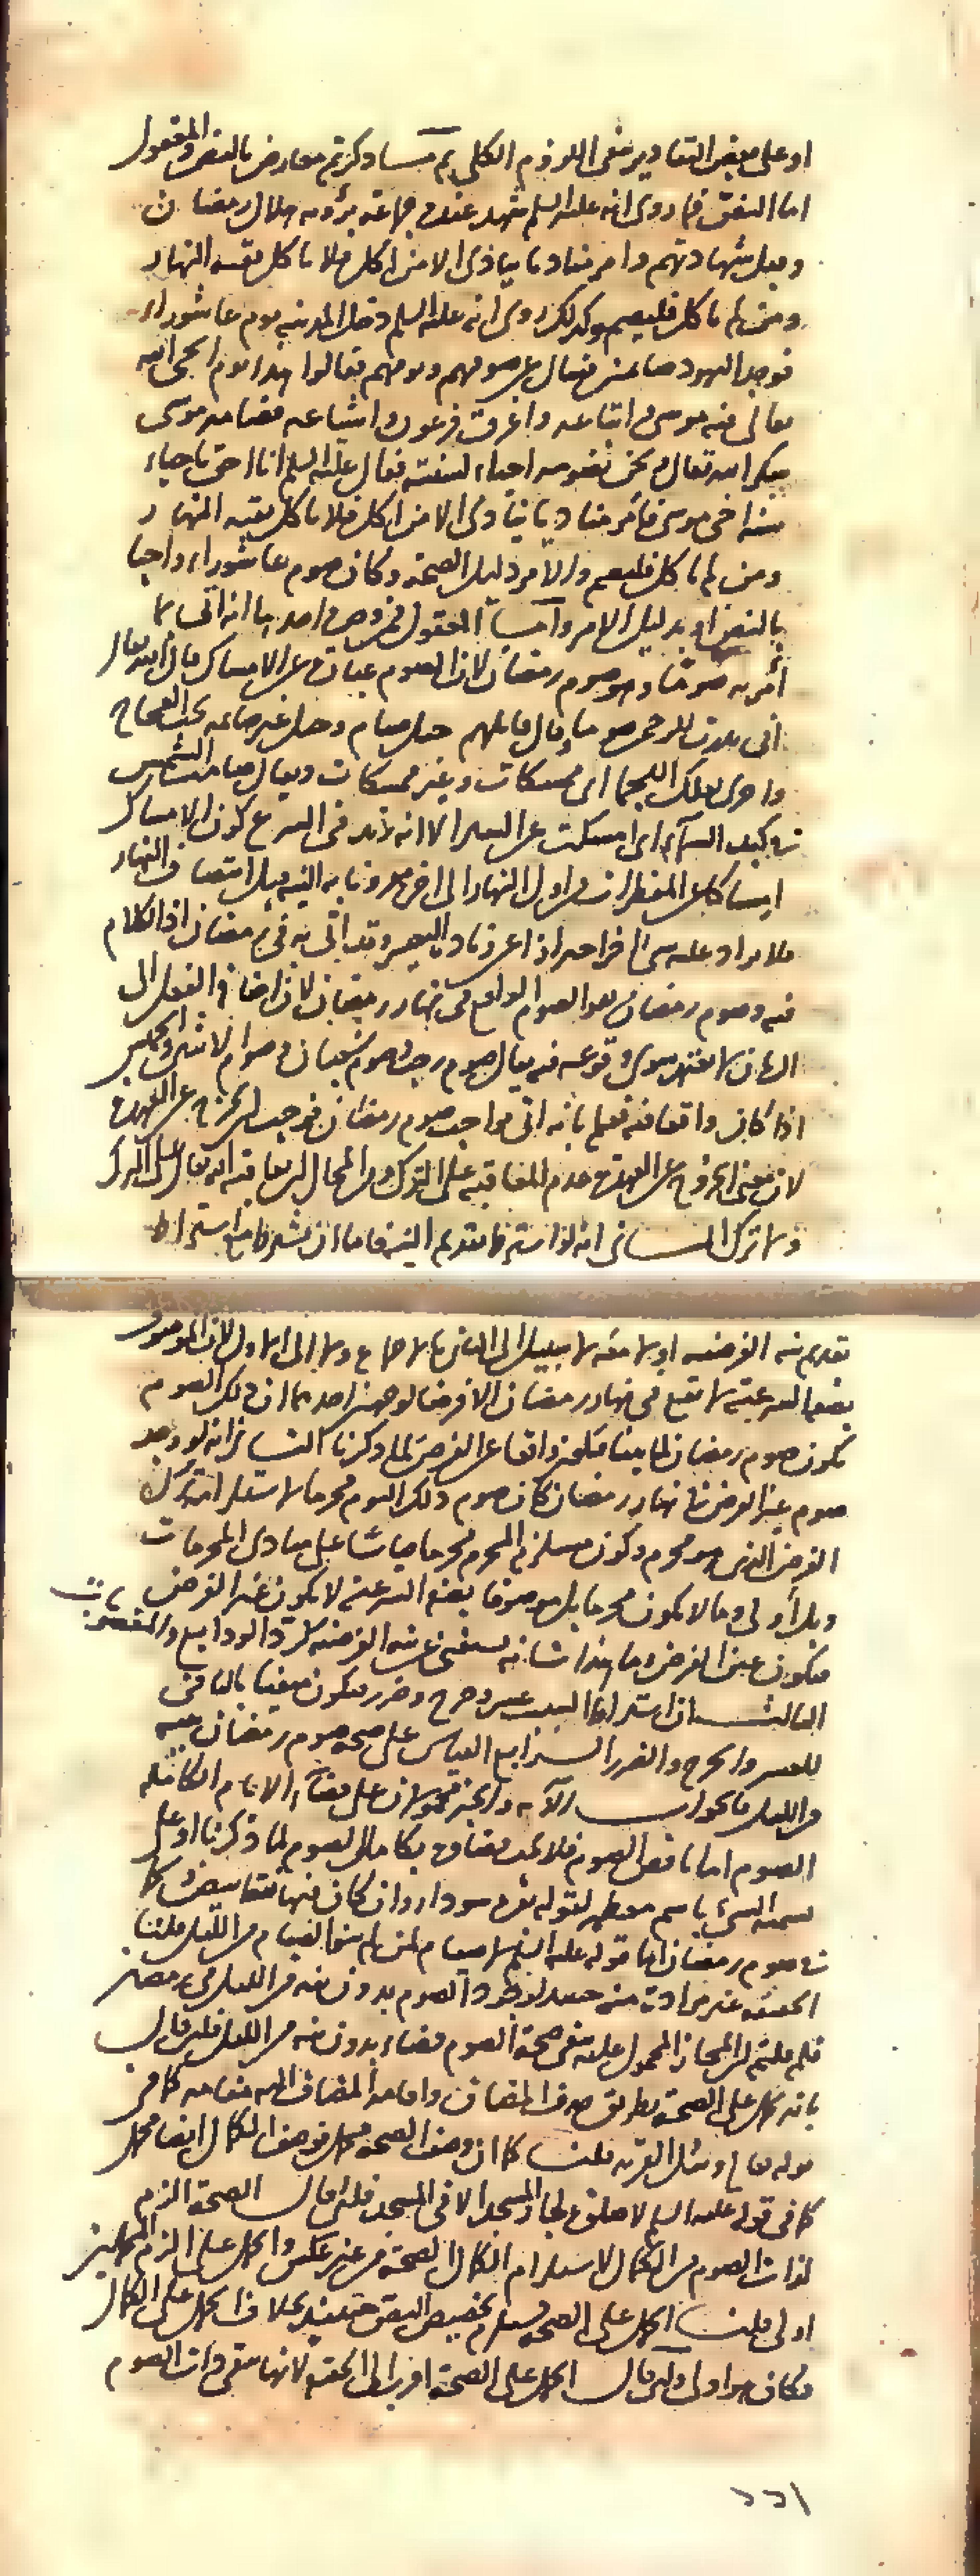 او على بعض التقادير منفى اللزوم الكلى ثم ما ذكرتم معارض بالنص والمعقول
اما النص فما روى انه عليه السلم شهد عنده جماعة برؤية هلال رمضان
وقبل شهادتهم وامر مناديا ينادى الا من اكل فلا ياكل بقية النهار
ومن لم ياكل فليصم وكذلك روى انه عليه السلم دخل المدينة يوم عاشوراء
فوجد اليهود صائمين فسال عن صومهم ويومهم فقالوا هذا يوم انجى الله
تعالى فيه موسى واتباعه واغرق فرعون واشياعه فصامه موسى
شكرا لله تعالى ونحن نصومه احياء لسنته فقال عليه السلم انا احق باحياء
سنة اخى موسى فامر مناديا ينادى الا من اكل فلا ياكل بقية النهار
ومن لم ياكل فليصم والامر دليل الصحة وكان صوم عاشوراء واجبا
بالنص او بدليل الامر واما المعقول فمن وجوه احدها انه اتى بما
أمر به صوما وهو صوم رمضان لان الصوم عبارة عن الامساك قال الله تعالى
انى نذرت للرحمن صوما وقال قايلهم خيل صيام وخيل غير صائمة تحت العجاج
واخرى تعلك اللجما اى ممسكات وغير ممسكات ويقال صامت الشمس
فى كبد السماء اى امسكت عن السير الا انه زيد فى الشرع كون الامساك
امساكا عن المفطرات من اول النهار الى اخره مقرونا بالنية قبل انتصاف النهار
فلا يزاد عليه شى اخر احترازا عن زيادة التغيير وقد اتى به فى رمضان اذ الكلام
فيه وصوم رمضان هو الصوم الواقع فى نهار رمضان لان اضافة الفعل الى
الزمان لا تقتضى سوى وقوعه فيه يقال صوم رجب وصوم شعبان وصوم الاثنين والخميس
اذا كان واقعا فيه فعلم بانه اتى بواجب صوم رمضان فوجب ان يخرج عن العهدة
لان معنى الخروج عن العهدة عدم المعاقبة على الترك ومن المحال ان يعاقبه الله تعالى على الترك
ولا ترك الثانى انه لو اشترط تقديم النية فاما ان يشترط مع اشتراط
تقديم نية الفرضية او لا معه لا سبيل الى الثانى بالاجماع ولا الى الاول لان الموصوف
بصفة الشرعية لا تقع فى نهار رمضان الا فرضا لوجهين احدهما ان ذلك الصوم
يكون صوم رمضان لما بينا فيكون واقعا عن الفرض لما ذكرنا الثانى انه لو وجد
صوم غير الفرض فى نهار رمضان كان صوم ذلك اليوم محرما لاستلزامه ترك
الفرض الذى هو محرم وكون مستلزم المحرم محرما قياسا على مبادى المحرمات
وبل أولى وما لا يكون محرما بل موصوفا بصفة الشرعية لا يكون غير الفرض
فيكون عين الفرض وما هذا شانه يستغنى عن نية الفرضية كرد الودايع والمغصوبات
الثالث ان اشتراط التبييت عسر وحرج وضرر فيكون منفيا بالنافى
للعسر والحرج والضرر الرابع القياس على صحة صوم رمضان بنية
من الليل فالجواب الآية والخبر محمولان على قضاء الايام الكاملة
الصوم اما ناقص الصوم فلا يجب قضاوه بكامل الصوم لما ذكرنا او على
تسمية الشئ باسم معظمه لقوله بقرة سوداء وان كان فيها نقط بيض كما
فى صوم رمضان اما قوله عليه السلم لا صيام لمن لم ينو الصيام من الليل قلنا
الحقيقة غير مرادة منه جميعا لوجود الصوم بدون نية من الليل فى رمضان
فلم قلتم ان المجاز المحمول عليه نفى صحة الصوم قضاء بدون نية من الليل فلئن قال
بانه يحمل على الصحة بطريق حذف المضاف واقامة المضاف اليه مقامه كما فى
قوله تعالى وسئل القرية قلنا كما ان وصف الصحة محتمل فوصف الكمال ايضا محتمل
كما فى قوله عليه السلم لا صلوة لجار المسجد الا فى المسجد فلئن قال الصحة الزم
لذات الصوم من الكمال لاستلزام الكمال الصحة من غير عكس والحمل على الزم المجازين
اولى قلنا الحمل على الصحة يستلزم تخصيص النص حينئذ بخلاف الحمل على الكمال
فكان هو اولى ولئن قال الحمل على الصحة اقرب الى الحقيقة لانها تنفى ذات الصوم
١٢٢